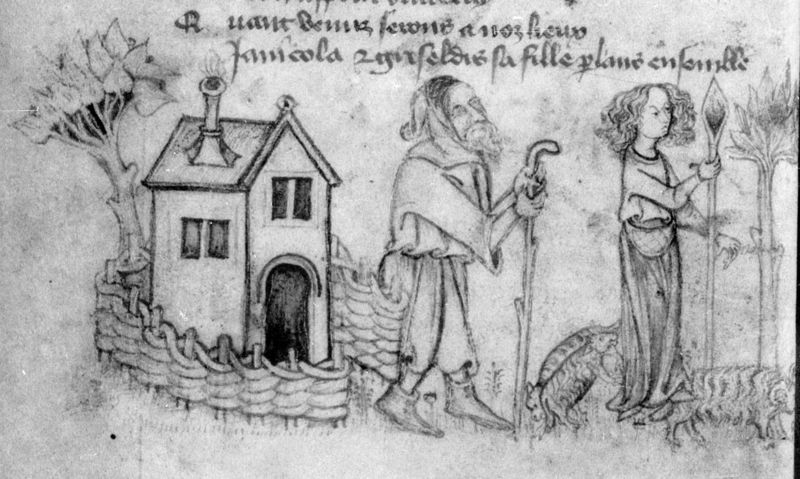 Quant venuz serons a noz lieux
Janicola & griseldis sa fille plans ensemble